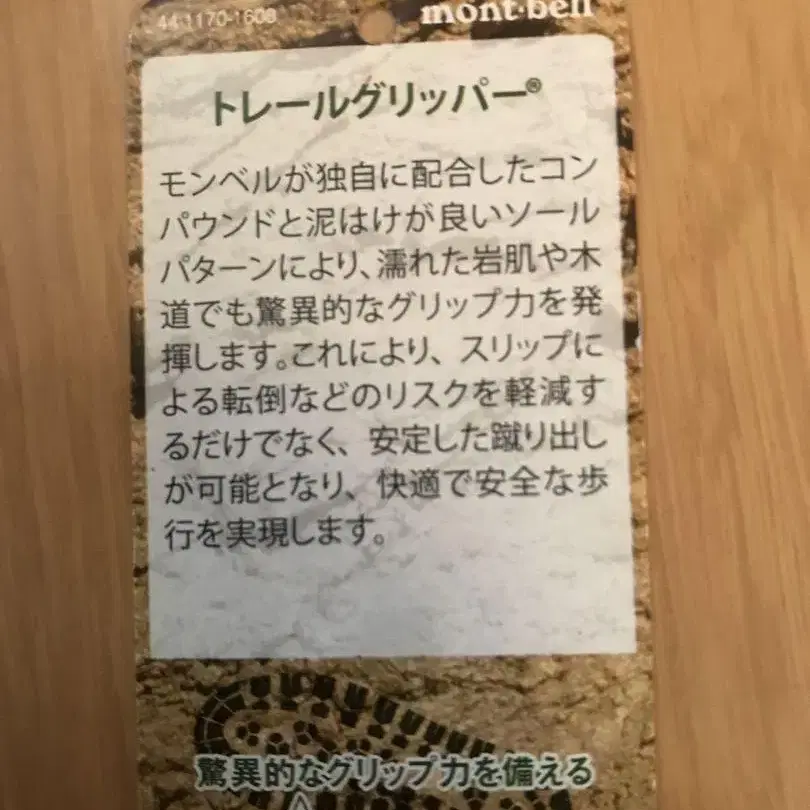 44 1170-1608
mont-bell
トレールグリッパー®
モンベルが独自に配合したコン
パウンドと泥はけが良いソール
パターンにより、濡れた岩肌や木
道でも驚異的なグリップ力を発
揮します。これにより、スリップに
よる転倒などのリスクを軽減す
るだけでなく、安定した蹴り出し
が可能となり、快適で安全な歩
行を実現します。
驚異的なグリップ力を備える